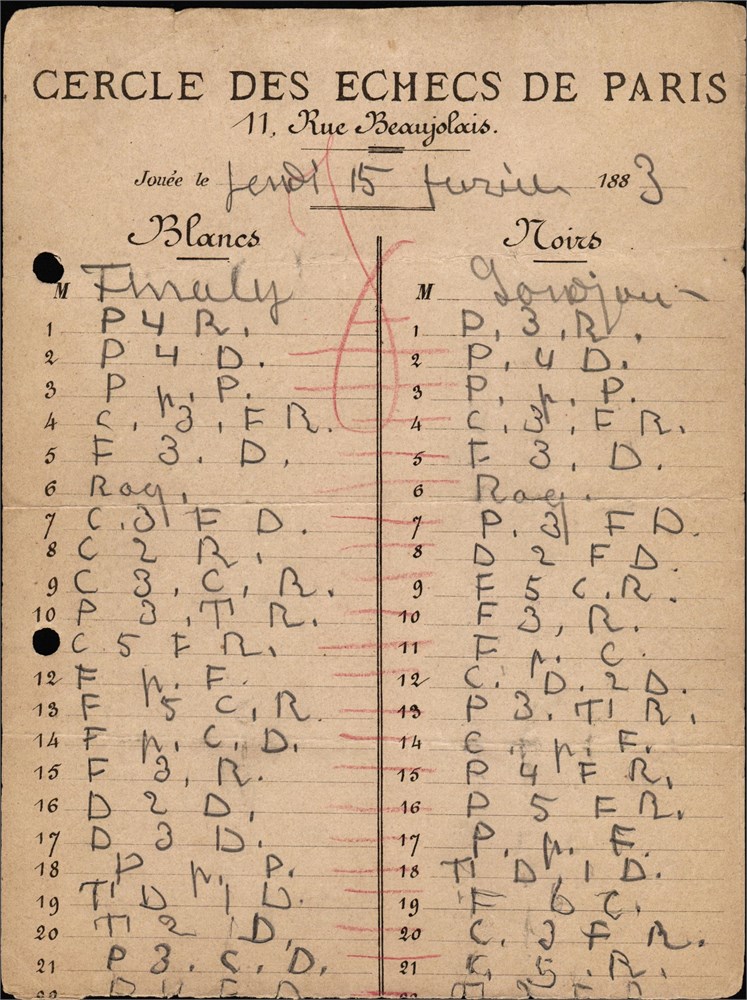 CERCLE DES ECHECS DE PARIS
11, Rue Beaujolais.
Jouée le jeudi 15 février 1883
Blancs Noirs
M M
1 P 4 R. 1 P. 3. R.
2 P 4 D. 2 P. 4 D.
3 P p. P. 3 P. p. P.
4 C. 3. F R. 4 C. 3. F R.
5 F 3. D. 5 F 3. D.
6 Roq. 6 Roq.
7 C. 3 F D. 7 P. 3 F D.
8 C 2 R. 8 D 2 F D.
9 C 3. C. R. 9 F 5 C. R.
10 P 3. T R. 10 F 3. R.
11 C 5 F R. 11 F p. C.
12 F p. F. 12 C. D. 2 D.
13 F 5 C. R. 13 P 3. T R.
14 F p. C. D. 14 C p. F.
15 F 3. R. 15 P 4 F R.
16 D 2 D. 16 P 5 F R.
17 D 3 D. 17 P. p. F.
18 P p. P. 18 T D 1 D.
19 T D 1 D. 19 F 6 C.
20 T 2 D. 20 C. 3 F R.
21 P 3. C. D. 21 C. 5. R.